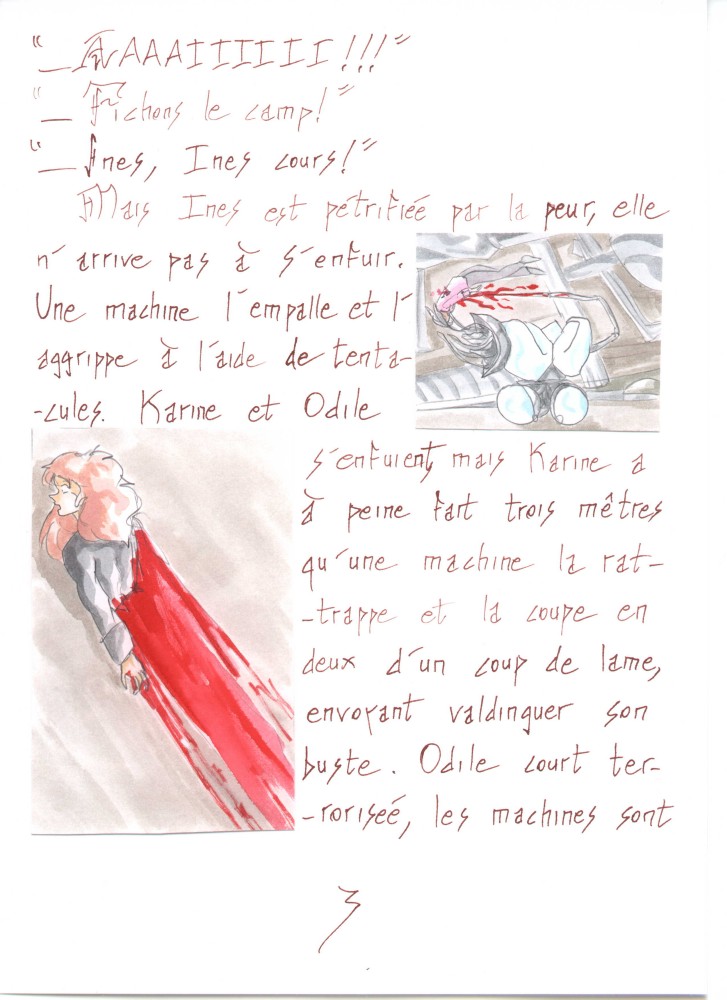 “— AAAAIIIIII!!!”
“— Fichons le camp!”
“— Ines, Ines cours!”
Mais Ines est pétrifiée par la peur, elle
n'arrive pas à s'enfuir.
Une machine l'empalle et l'
aggrippe à l'aide de tenta-
-cules. Karine et Odile
s'enfuient, mais Karine a
à peine fait trois mêtres
qu'une machine la rat-
-trappe et la coupe en
deux d'un coup de lame,
envoyant valdinguer son
buste. Odile court ter-
-rorisée, les machines sont
3